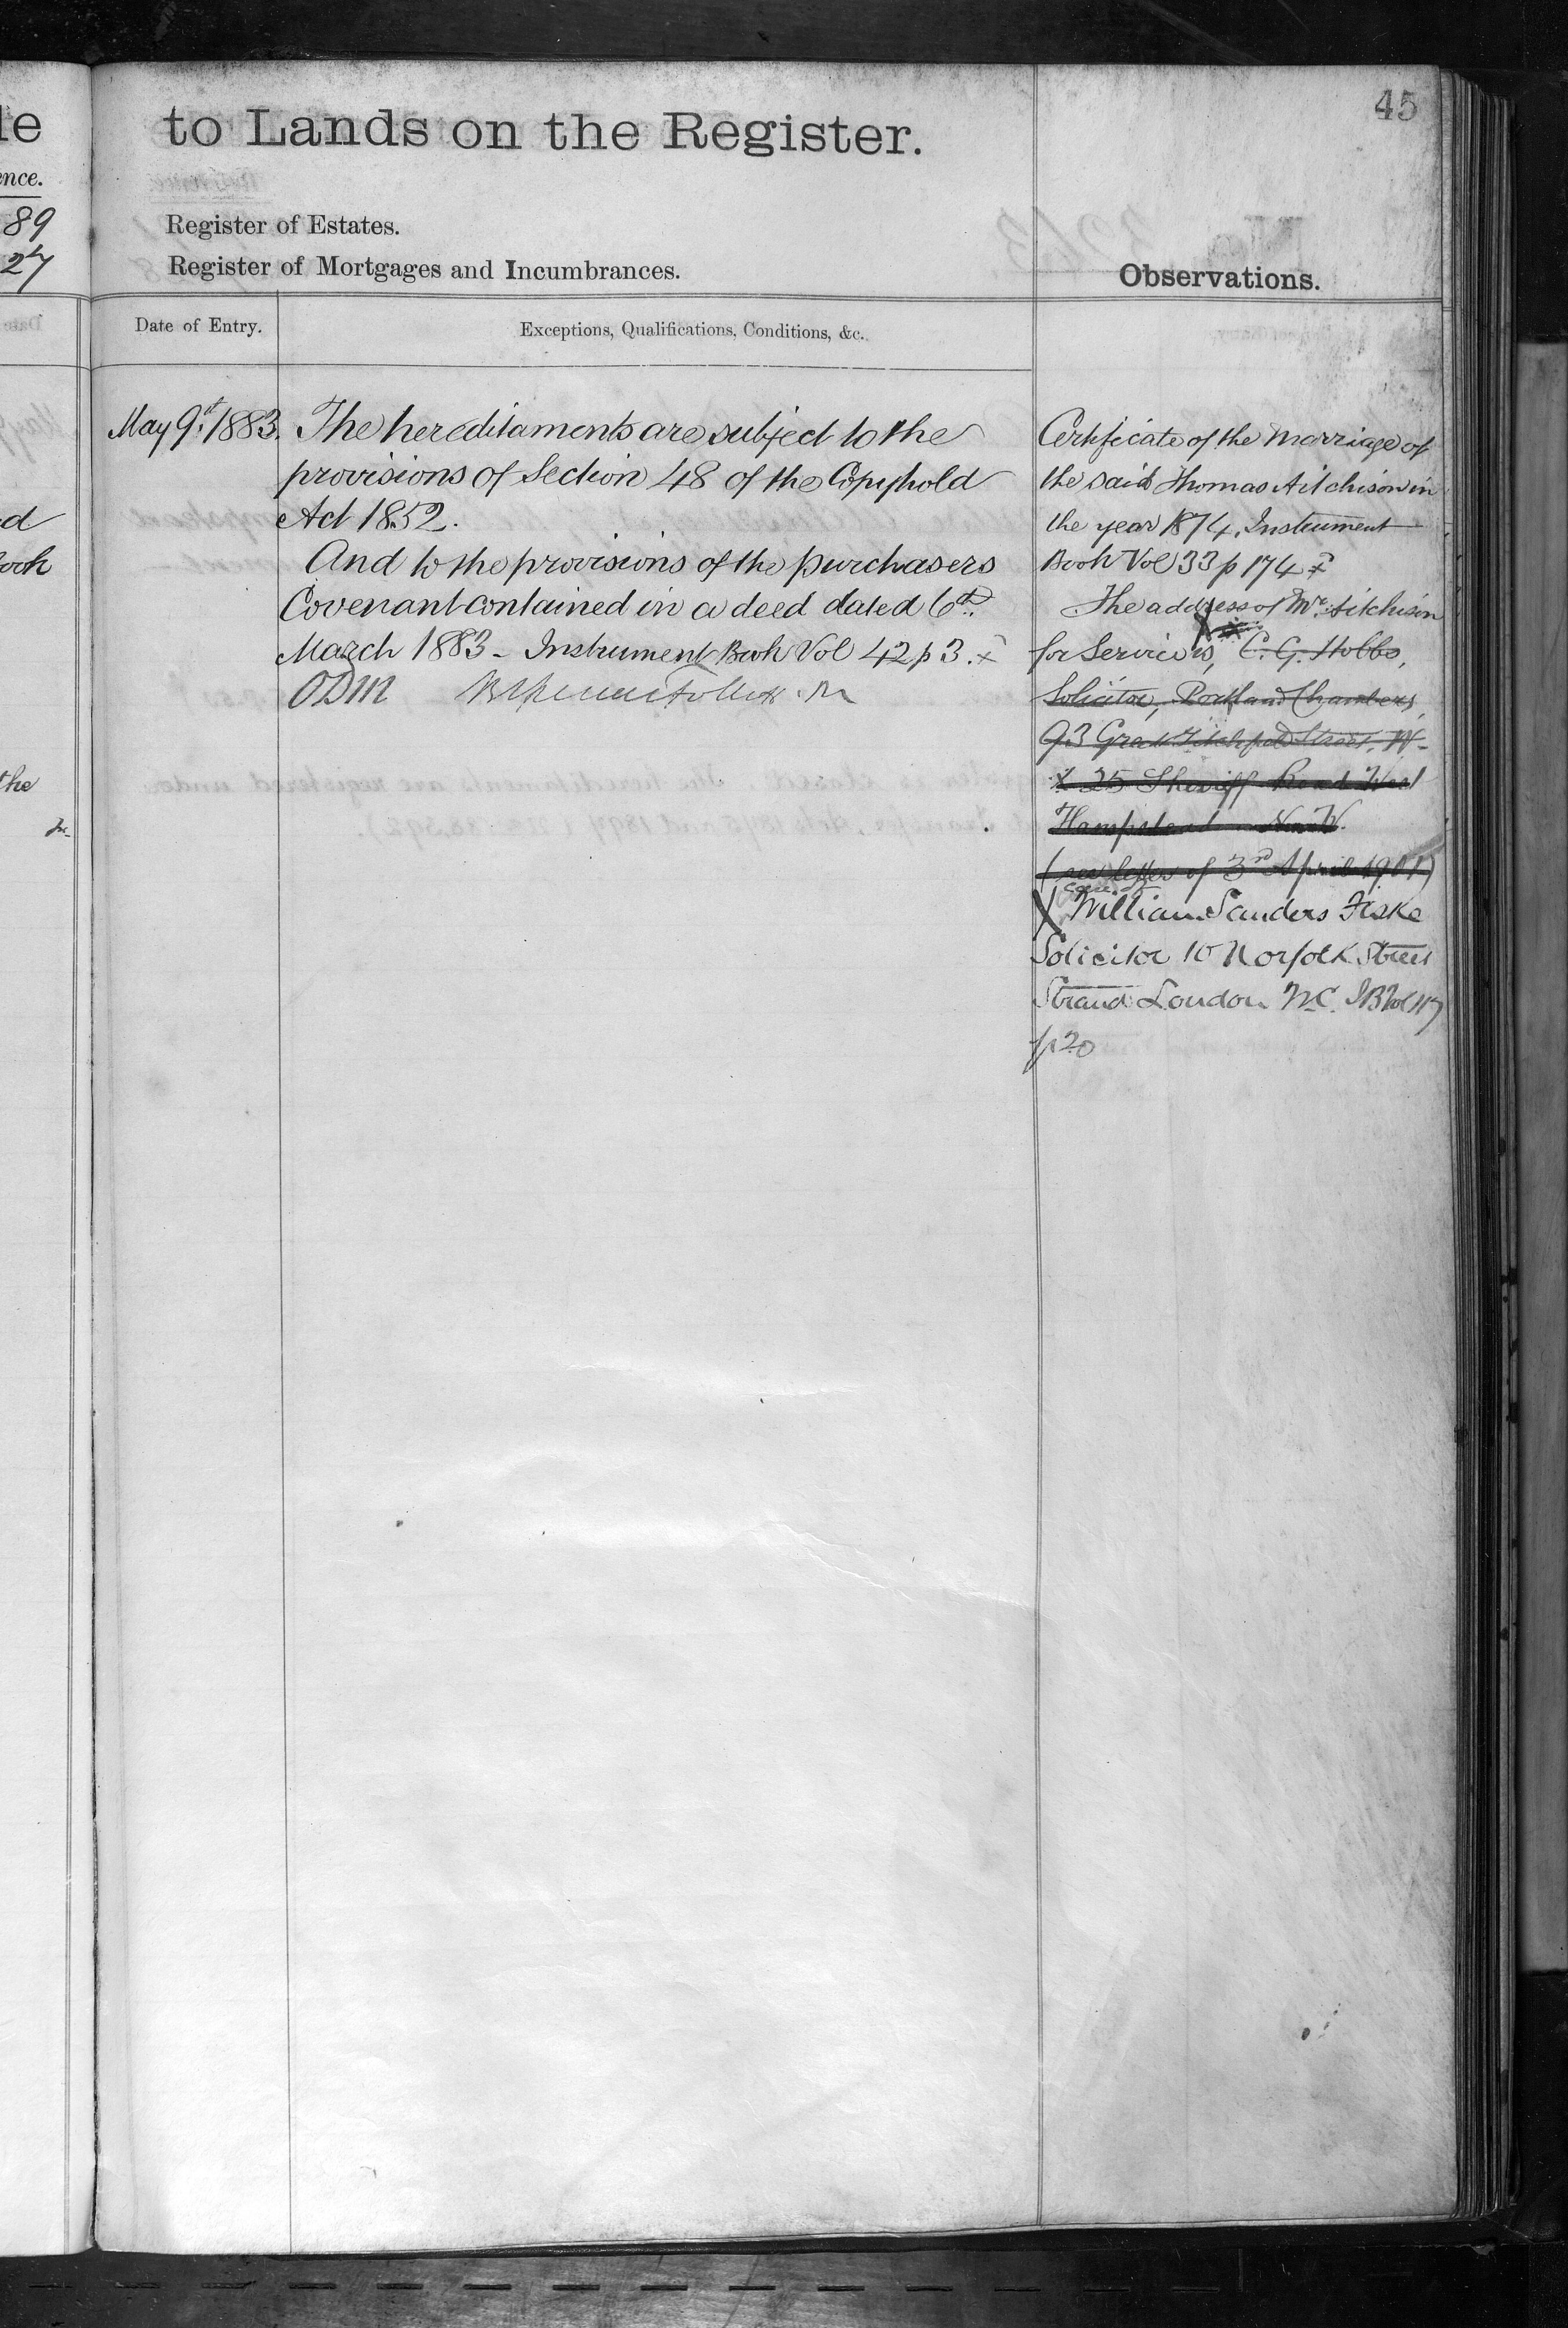 45
le
to Lands on the Register.
ence.
89
27
Register of Estates.
Register of Mortgages and Incumbrances.
Observations.
Date of Entry.
Exceptions, Qualifications, Conditions, &c.
May 9th 1883.
The hereditaments are subject to the
provisions of Section 48 of the Copyhold
Act 1852.
And to the provisions of the purchasers
Covenant contained in a deed dated 6th
March 1883 - Instrument Book Vol 42 p 3. x
ODM
Certificate of the Marriage of
the said Thomas Aitchison in
the year 1874. Instrument
Book Vol 33 p 174 x
The address of Mr. Aitchison
for Service is, C. G. Hobbs,
Solicitor, Portland Chambers,
93 Great Titchfield Street, W.
X 25 Sheriff Road West
Hampstead N.W.
(see letter of 3rd April 1901)
care of
X William Sanders Fiske
Solicitor 10 Norfolk Street
Strand London W.C. IB Vol 117
p 20
d
ook
the